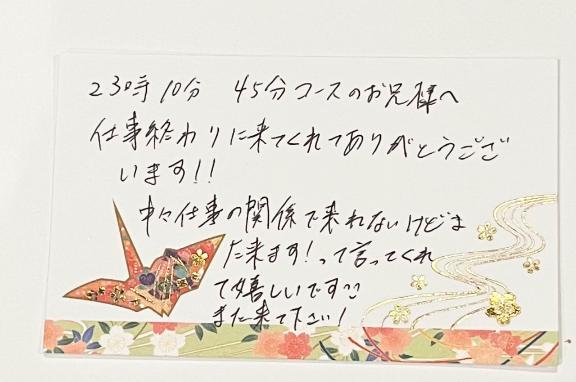 23時10分 45分コースのお兄様へ
仕事終わりに来てくれてありがとうござ
います!!
中々仕事の関係で来れないけどま
た来ます!って言ってくれ
て嬉しいです
また来て下さい!